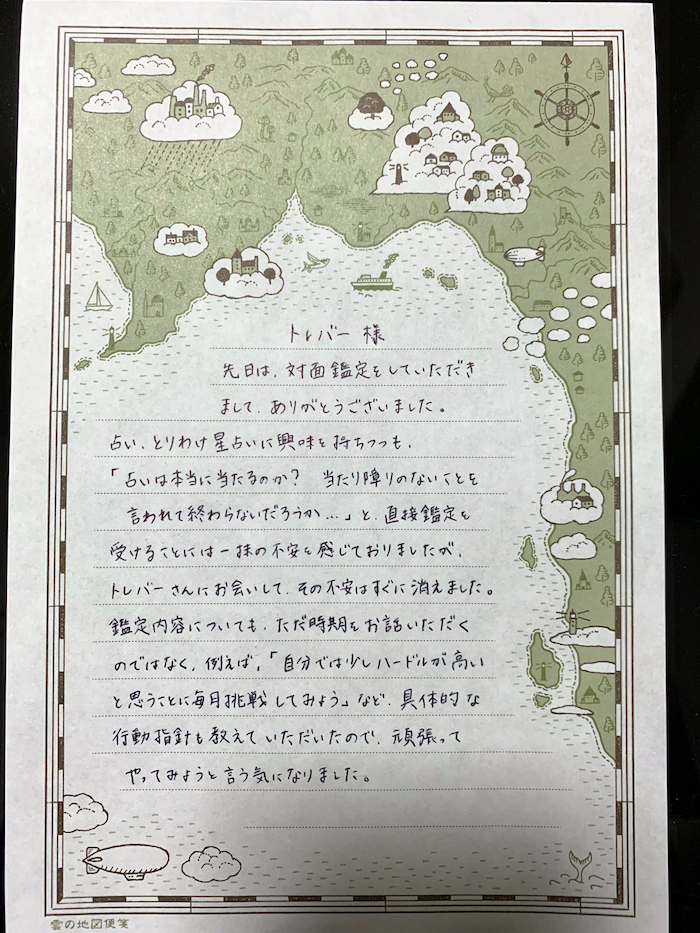 トレバー様
先日は、対面鑑定をしていただき
まして、ありがとうございました。
占い、とりわけ星占いに興味を持ちつつも、
「占いは本当に当たるのか？ 当たり障りのないことを
言われて終わらないだろうか…」と、直接鑑定を
受けることには一抹の不安を感じておりましたが、
トレバーさんにお会いして、その不安はすぐに消えました。
鑑定内容についても、ただ時期をお話いただく
のではなく、例えば、「自分では少しハードルが高い
と思うことに毎月挑戦してみよう」など、具体的な
行動指針も教えていただいたので、頑張って
やってみようと言う気になりました。
雲の地図便箋